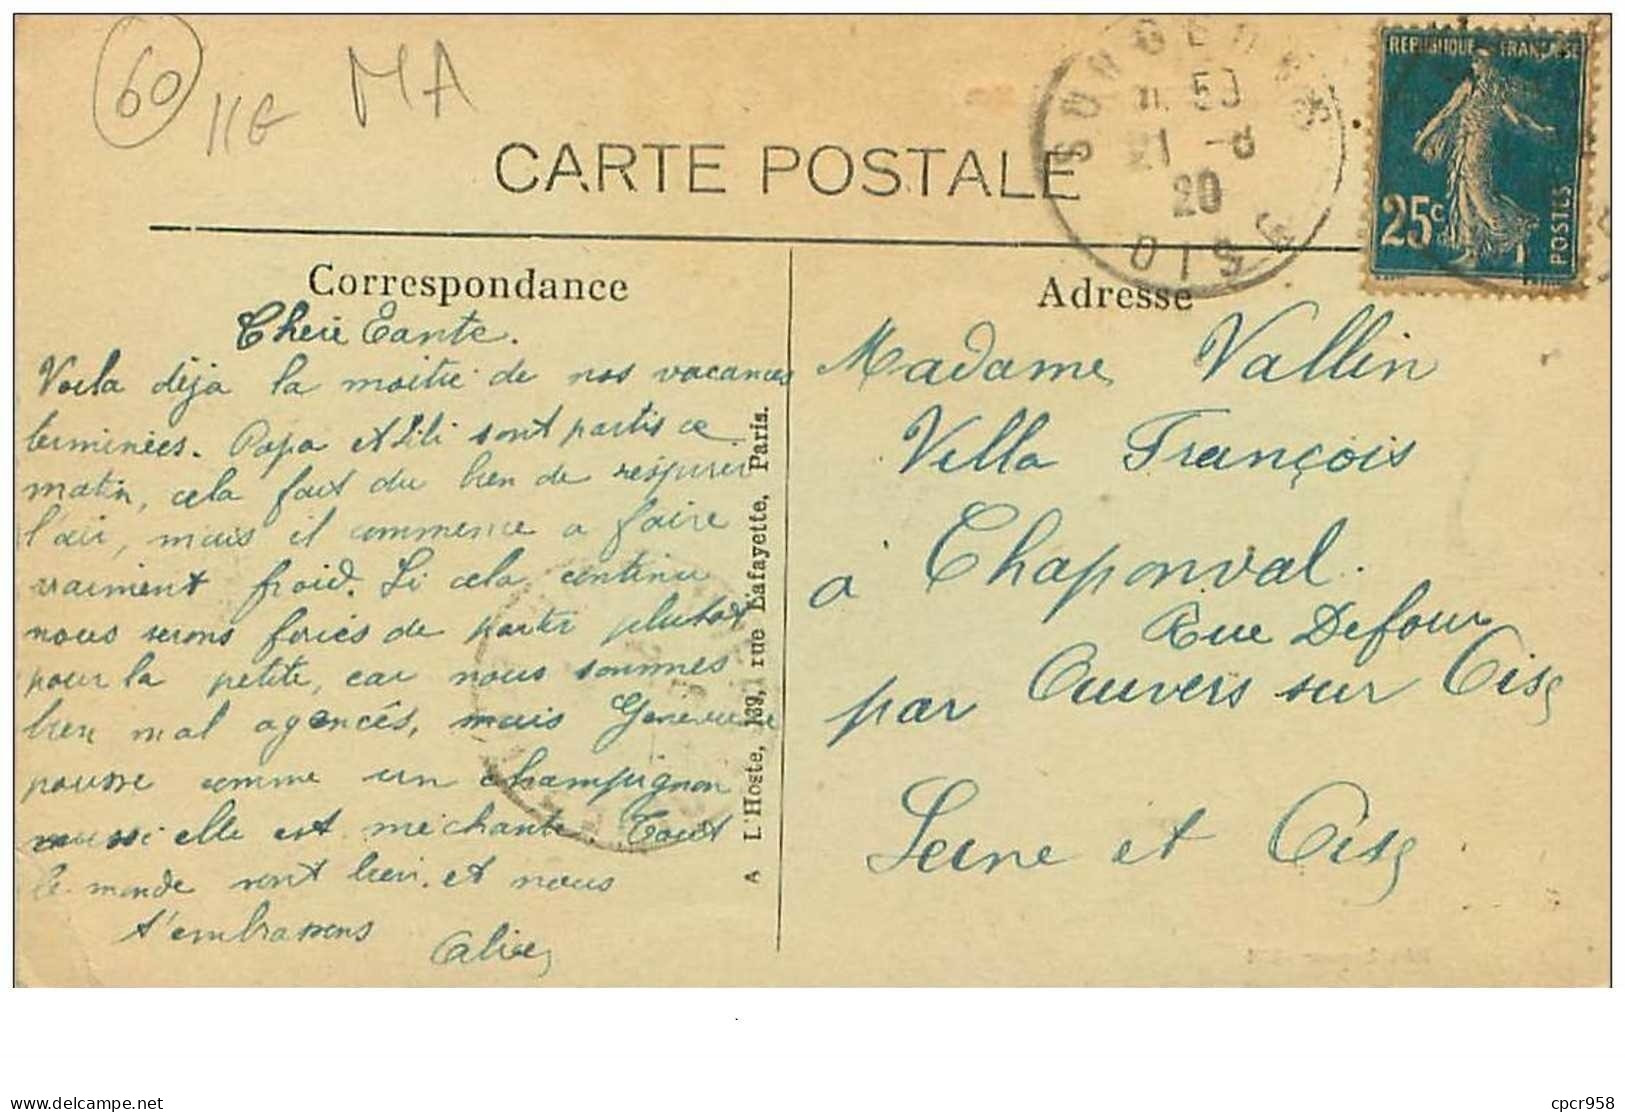 60
IIG
MA
CARTE POSTALE
SONGEONS
11 50
21 -8
20
OISE
REPUBLIQUE FRANÇAISE
25c
POSTES
Correspondance
Adresse
Chere Tante.
Voila déja la moitié de nos vacances
terminées. Papa et Lili sont partis ce
matin, cela fait du bien de respirer
l'air, mais il commence a faire
vraiment froid. Si cela continu
nous serons forcés de partir plutot
pour la petite, car nous sommes
bien mal agencés, mais Genevieve
pousse comme un champignon
aussi elle est méchante. Tout
le monde vont bien. et nous
t'embrassons
Alice
A L'Hoste, 139, rue Lafayette, Paris.
Madame Vallin
Villa François
à Chaponval.
Rue Defour
par Auvers sur Oise
Seine et Oise
delcampe.net
cpcr958